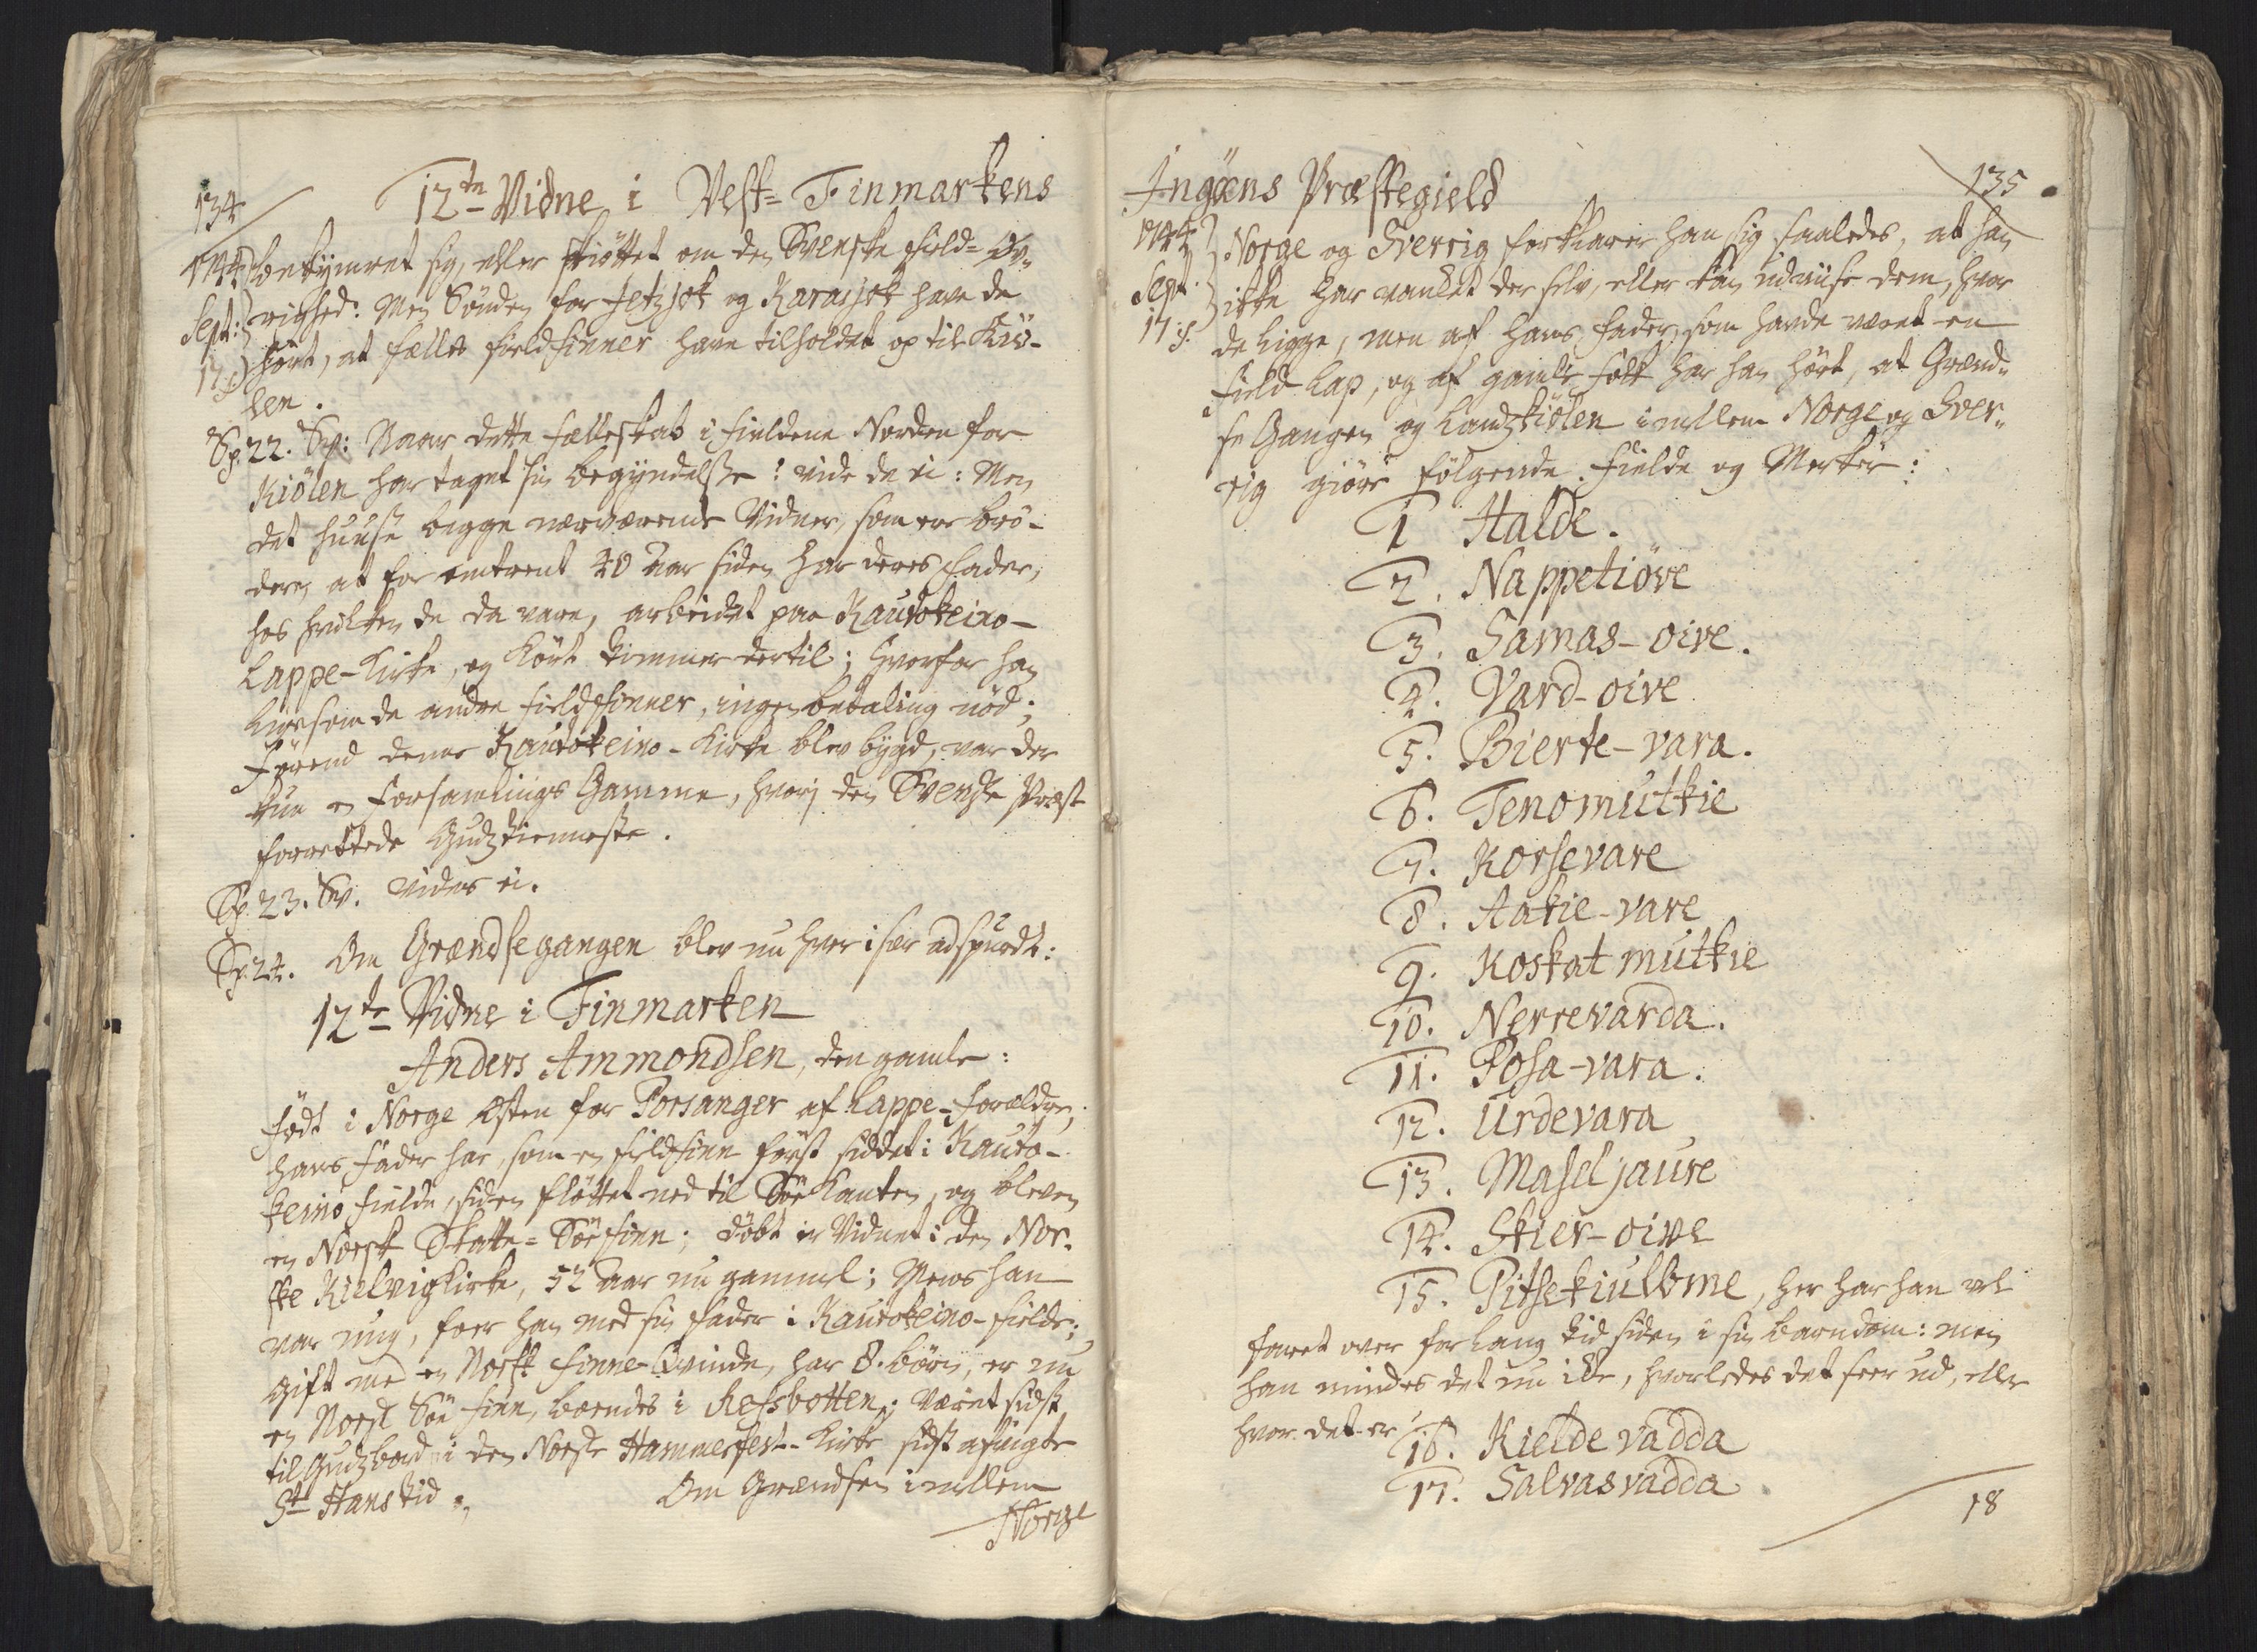 134
12te Vidne i Vest-Finmarkens
1744
Sept:
17 d
bekymret sig, eller skiøttet om den Svenske field-Øv-
righed: Men Sønden for Jetzjok og Karasjok have de
hørt, at fælles fieldfinner have tilholdet op til Kiö-
len.
Sp. 22. Sv: Naar dette fælleskab i fieldene Norden for
Kiölen har taget sin begyndelse? vide de ei: Men
det huuse begge nærværende Vidner, som ere brö-
dere, at for omtrent 40 aar siden har deres fader,
hos hvilken de da vare, arbeidet paa Kautokeino-
Lappe-Kirke, og kiört timmer dertil; hvorfor han
ligesom de andre fieldfinner, ingen betaling nöd;
Förend denne Kautokeino-Kirke blev bygd, var der
kun en forsamlings Gamme, hvorj den Svenske Præst
forrettede Gudztienneste.
Sp. 23. Sv. vides ei.
Sp. 24. Om Grændsegangen blev nu hver i sær udspurdt:
12te Vidne i Finmarken
Anders Ammondsen, den gamle:
födt i Norge Østen for Porsanger af Lappe-forældre,
hans fader har, som en fieldfinn först siddet i Kauto-
keino fielde, siden flöttet ned til Söe Kanten, og bleven
en Norsk Skatte-Söefinn; döbt er Vidnet i den Nor-
ske Kielvig Kirke, 52 aar nu gammel; Mens han
var ung, foer han med sin fader i Kautokeino-fielde;
Gift med en Norsk finne-Qvinde, har 8. börn, er nu
en Norsk Söe finn, boendes i Refsbotten; Været sidst
til Gudzbord i den Norske Hammerfest-Kirke sidst afvigte
St Hans tid.
Om Grændsen imellem
Norge
Ingöens Præstegield
135
1744
Sept.
17 d.
Norge og Sverrig forklarer han sig saaledes, at han
ikke har vanket der selv, eller kan udviise dem, hvor
de ligge, men af hans fader, som havde været en
field Lap, og af gamle folk har han hört, at Grænd-
se Gangen og Landzkiölen imellem Norge og Sver-
rig giöre fölgende fielde og Merker:
1 Halde.
2. Nappetiöve
3. Samas-oive.
4. Vard-oive
5. Bierte-vara.
6. Tenomutkie
7. Korsevare
8. Aakie-vare
9. Koskat mutkie
10. Nerrevarda.
11. Posa-vara.
12. Urdevara
13. Maseljaure
14. Skier-oive
15. Pitsekiulbme, her har han vel
faret over for lang tid siden i sin barndom: men
han mindes det nu ikke, hvorledes det seer ud, eller
hvor det er
16. Kieldevadda
17. Salvasvadda.
18